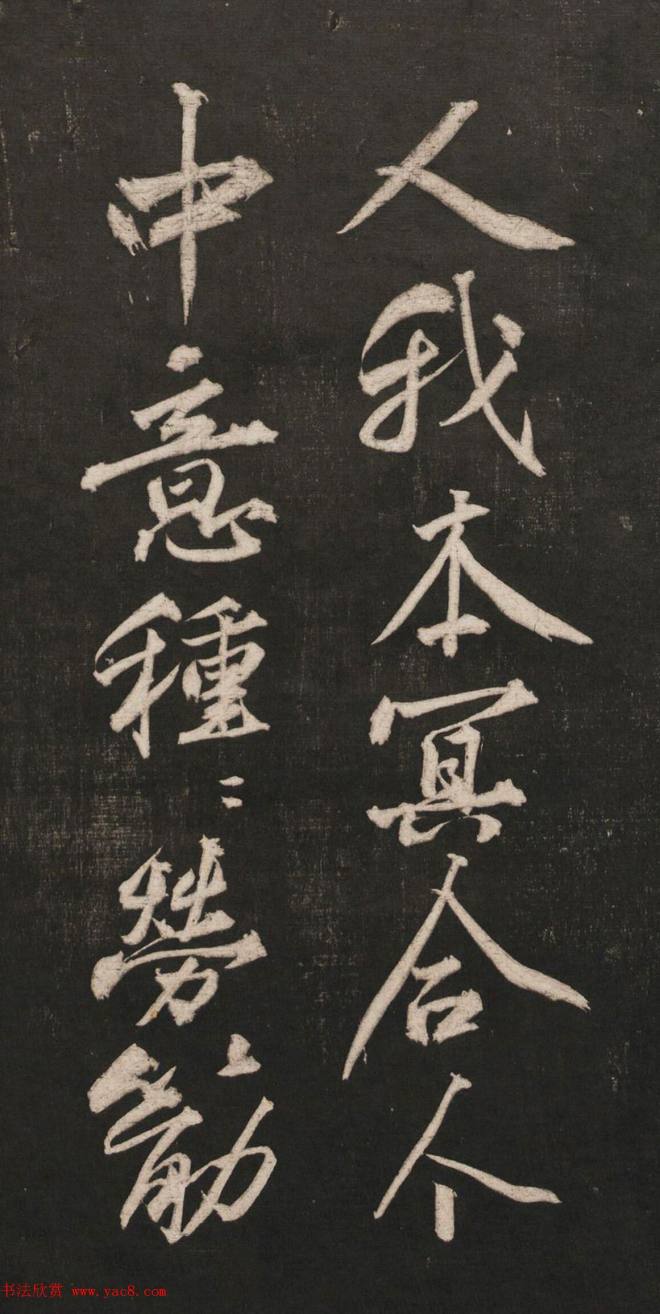 人我本冥合个
中意種〻勞筋
书法欣赏 www.yac8.com